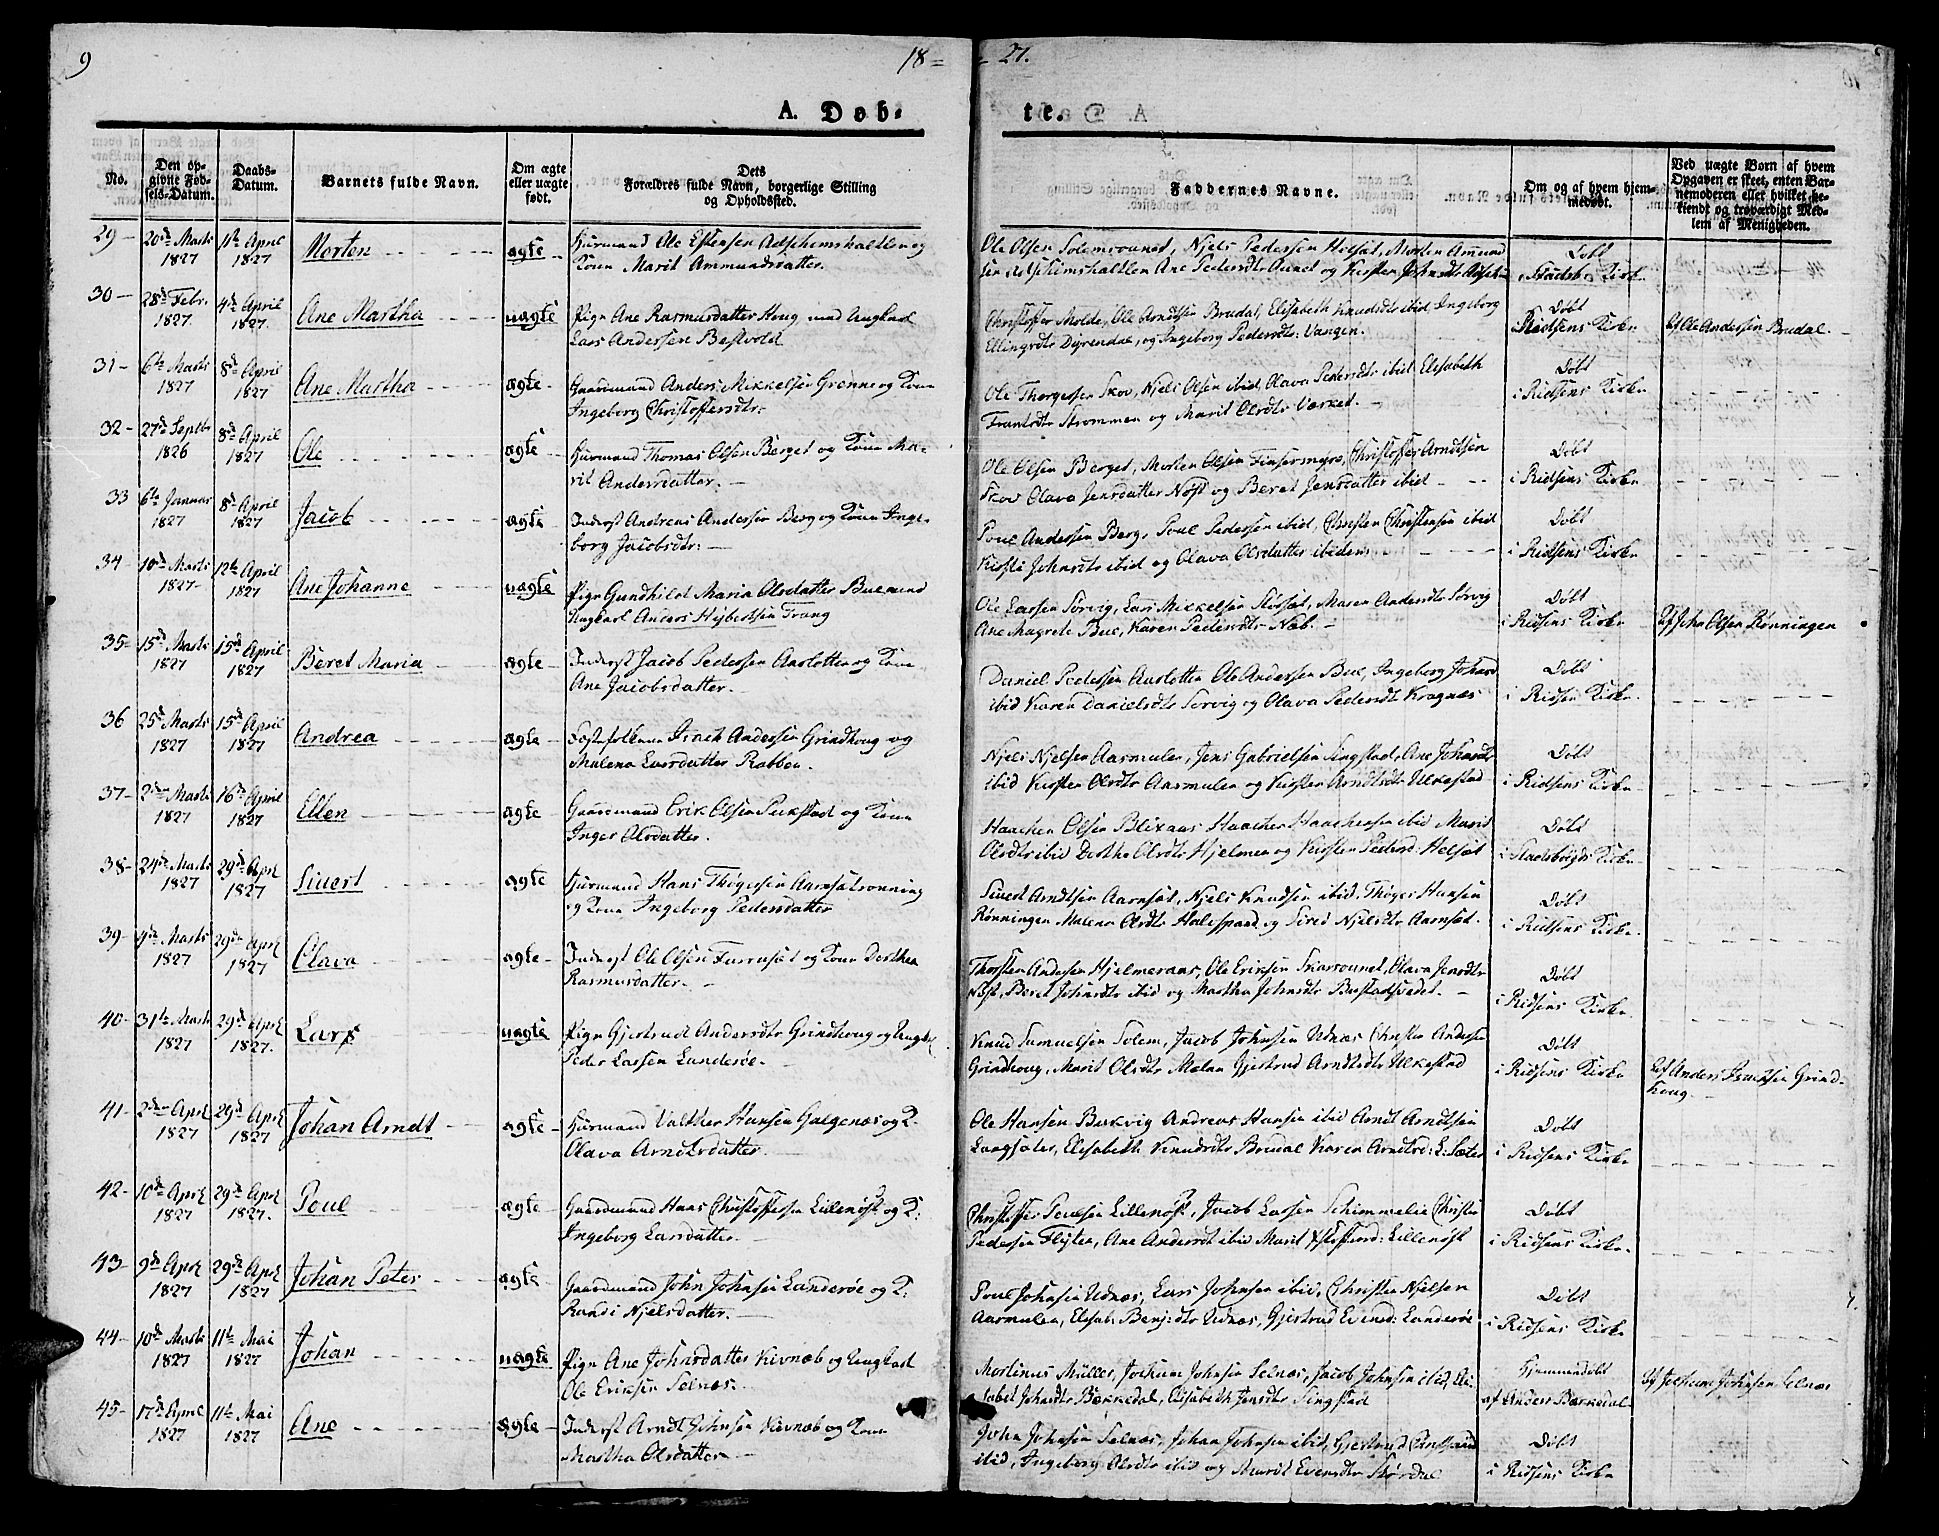 9
18 = = 27.
A. Døb- te.
No.
Den op-
givne Fød-
sels-Datum.
Daabs-
Datum.
Barnets fulde Navn.
Om ægte
eller uægte
født.
Dets
Forældres fulde Navn, borgerlige Stilling
og Opholdssted.
Faddernes Navne.
Om og af hvem hjem-
medøbt.
Ved uægte Børn af hvem
Opgaven er skeet, enten Bar-
nemoderen eller hvilket be-
kiendt og troværdigt Med-
lem af Menigheden.
29 20de Marts 1827 11te April 1827 Morten ægte
Huusmand Ole Estensen
Kone Marit Ammundsdatter.
Ole Olsen Solemsouned, Njels Pedersen Helsæt, Morten Ammund
Døbt
i Stadsb. Kirke
30 28de Febr. 1827 4de April 1827. Ane Martha uægte
Pige Ane Rasmusdatter Houg med Ungkarl
Lars Andersen Bestvold
Christoffer Molde, Ole Arndtsen Brudal, Elisabeth Knudsdtr ibid, Ingeborg
Ellingsdtr Dyrendal, og Ingeborg Pedersdtr: Vangen.
Døbt
i Ridsens Kirke
af Ole Andersen Brudal.
31 6te Marts 1827 8de April 1827 Ane Martha ægte
Gaardmand Anders Mikkelsen Grønne og Kone
Ingeborg Christoffersdtr:
Ole Thorgersen Skov, Njels Olsen ibid, Olava Pedersdtr ibid, Elisabeth
Frantsdtr Strømmen og Marit Olsdtr Værket.
Døbt
i Ridsens Kirke
32 27de Septbr 1826 8de April 1827 Ole ægte
Huusmand Thomas Olsen Berget og Kone Ma-
rit Andersdatter.
Ole Olsen Berget, Morten Olsen Finsermyre, Christoffer Arndtsen
Skov Olava Jensdatter Nøst og Beret Jensdatter ibid
Døbt
i Ridsens Kirke
33 6te Januar 1827 8de April 1827 Jacob ægte
Inderst Andreas Andersen Berg og Kone Inge-
borg Jacobsdtr:
Poul Andersen Berg, Poul Pedersen ibid, Christen Christensen ibid
Kirsti Johnsdtr ibid og Olava Olsdatter ibidem
Døbt
i Ridsens Kirke
34 10de Marts 1827 12te April 1827 Ane Johanne uægte
Pige Gundhild Maria Olsdatter Bue med
Ungkarl Anders Hejbertsen Trang
Ole Larsen Sørvig, Lars Mikkelsen Størsæt, Maren Andersdtr Sørvig
Ane Magrete Bue, Karen Pedersdtr Næb.
Døbt
i Ridsens Kirke
af John Olsen Rønningen
35 15de Marts 1827 15de April 1827 Beret Maria ægte
Inderst Jacob Pedersen Aarlotten og Kone
Ane Jacobsdatter.
Daniel Pedersen Aarlotten Ole Andersen Bue, Ingeborg Johnsd
ibid Karen Danielsdtr Sørvig og Olava Pedersdtr Kragnæs
Døbt
i Ridsen Kirke
36 25de Marts 1827 15de April 1827 Andrea ægte
Festefolkene Isach Andersen Grindhoug og
Malena Larsdatter Rabben.
Njels Njelsen Aasmulen, Jens Gabrielsen Singstad, Ane Johnsdtr
ibid Kirsten Olsdtr Aasmulen og Kirsten Arndtsdtr Ulkestad
Døbt
i Ridsens Kirke
37 2den Marts 1827 16de April 1827 Ellen ægte
Gaardmand Erik Olsen Pukstad og Kone
Inger Olsdatter.
Haachen Olsen Blixaas Haachen Haachensen ibid Marit
Olsdtr ibid Dorthe Olsdtr Hjelmen og Kirsten Pedersd: Helsæt
Døbt
i Stadsbøigds Kirke
38 24de Marts 1827 29de Apri 1827 Siuert ægte
Huusmand Hans Thøgersen Aarnsætrønning
og Kone Ingeborg Pedersdatter
Siuert Arndtsen Aarnsæt, Njels Knudsen ibid, Thøger Hansen
Rønningen Malena Olsdtr og Sired Njelsdtr Aarnsæt.
Døbt
i Ridsens Kirke
39 4de Marts 1827 29de Apri 1827 Olava ægte
Inderst Ole Olsen Furrusæt og Kone Dorthea
Rasmusdatter.
Thorsten Andersen Hjelmeraas, Ole Eriksen Skarsouned, Olava Jensdtr
Nøst, Beret Johnsdtr ibid og Martha Johnsdtr Bustadsvedet.
Døbt
i Ridsens Kirke
40 31te Marts 1827 29de Apri 1827. Lars uægte
Pige Gjertrud Andersdtr Grindhoug og Ungk
Peder Larsen Landerøe.
Knud Samuelsen Solem, Jacob Johnsen Udnæs Christen Andersen
Grindhoug, Marit Olsdtr Melan Gjertrud Arndtsdtr Ulkestad
Døbt
i Ridsens Kirke
af Anders Isachsen Grind-
houg.
41 2den Apri 1827 29de Apri 1827 Johan Arndt ægte
Huusmand Valther Hansen Galgenæs og K.
Olava Arndtsdatter
Ole Hansen Bukvig Andreas Hansen ibid Arndt Arndtsen
Langsæter, Elisabeth Knudsdtr Brudal Karen Arndtsd: L: Sæter
Døbt
i Ridsens Kirke
42 10de Apri 1827 29de Apri 1827. Poul ægte
Gaardmand Hans Christoffersen Lillenøst og K:
Ingeborg Larsdatter.
Christoffer Poulsen Lillenøst, Jacob Larsen Schimmelie Christen
Pedersen Flyten, Ane Andersdt ibid Marit Lillenøst
Døbt
i Ridsens Kirke
43 9de Apri 1827 29de Apri 1827 Johan Peter ægte
Gaardmand John Johnsen Landerøe og K:
Randi Njelsdatter.
Poul Johnsen Udnæs, Lars Johnsen ibid, Christen Njelsen
Aasmulen, Elisab: Benj:dtr Udnæs, Gjertrud Evensd: Landerøe
Døbt
i Ridsens Kirke
44 10de Marts 1827 11te Mai 1827 Johan uægte
Pige Ane Johnsdatter Kivnæb og Ungkarl
Ole Eriksen Selnæs.
Mortinus Müller, Jochum Johnsen Selnæs, Jacob Johnsen ibid, Eli-
sabet Johnsdtr Bækkedal, Elisabeth Jensdtr Singstad
Hjemmedøbt
af Anders Bækkedal
af Jochum Johnsen Selnæs
45 17de April 1827 11te Mai 1827 Ane ægte
Inderst Arndt Johnsen Kivnæb og Kone
Martha Olsdatter
John Johnsen Selnæs, Johan Johnsen ibid, Gjertrud
ibid, Ingeborg Olsdtr ibid og Marit Evensdtr Størdal
Døbt
i Ridsens Kirke